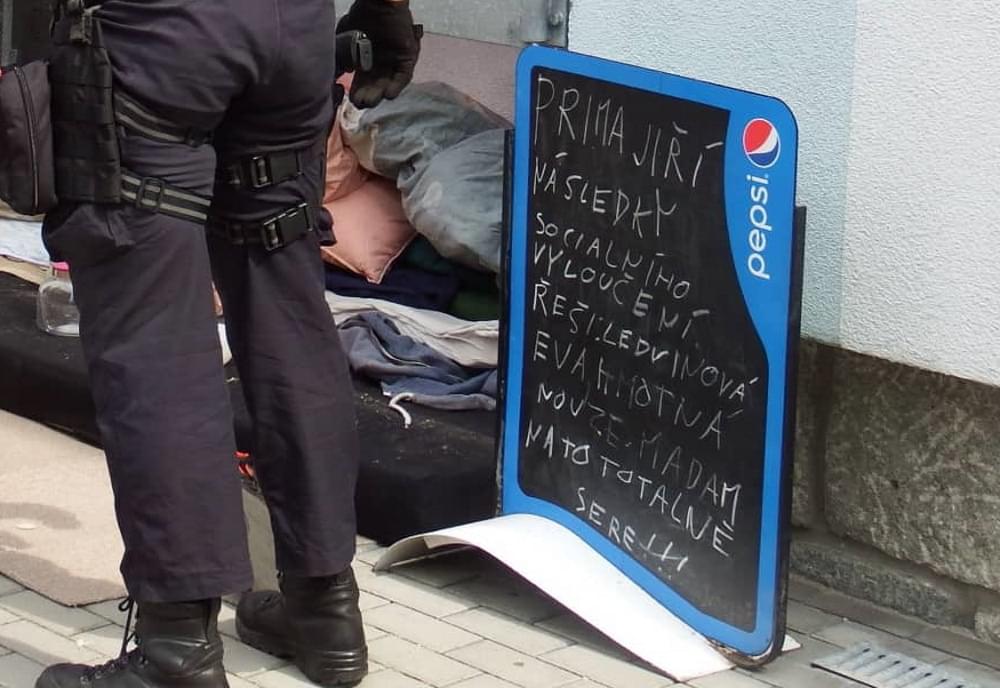 PRIMA JIŘÍ
NÁSLEDKY
SOCIALNÍHO
VYLOUČENÍ
ŘEŠI:LEDVINOVÁ
EVA,HMOTNÁ
NOUZE.MADAM
NATO TOTALNĚ
SERE!!!
pepsi